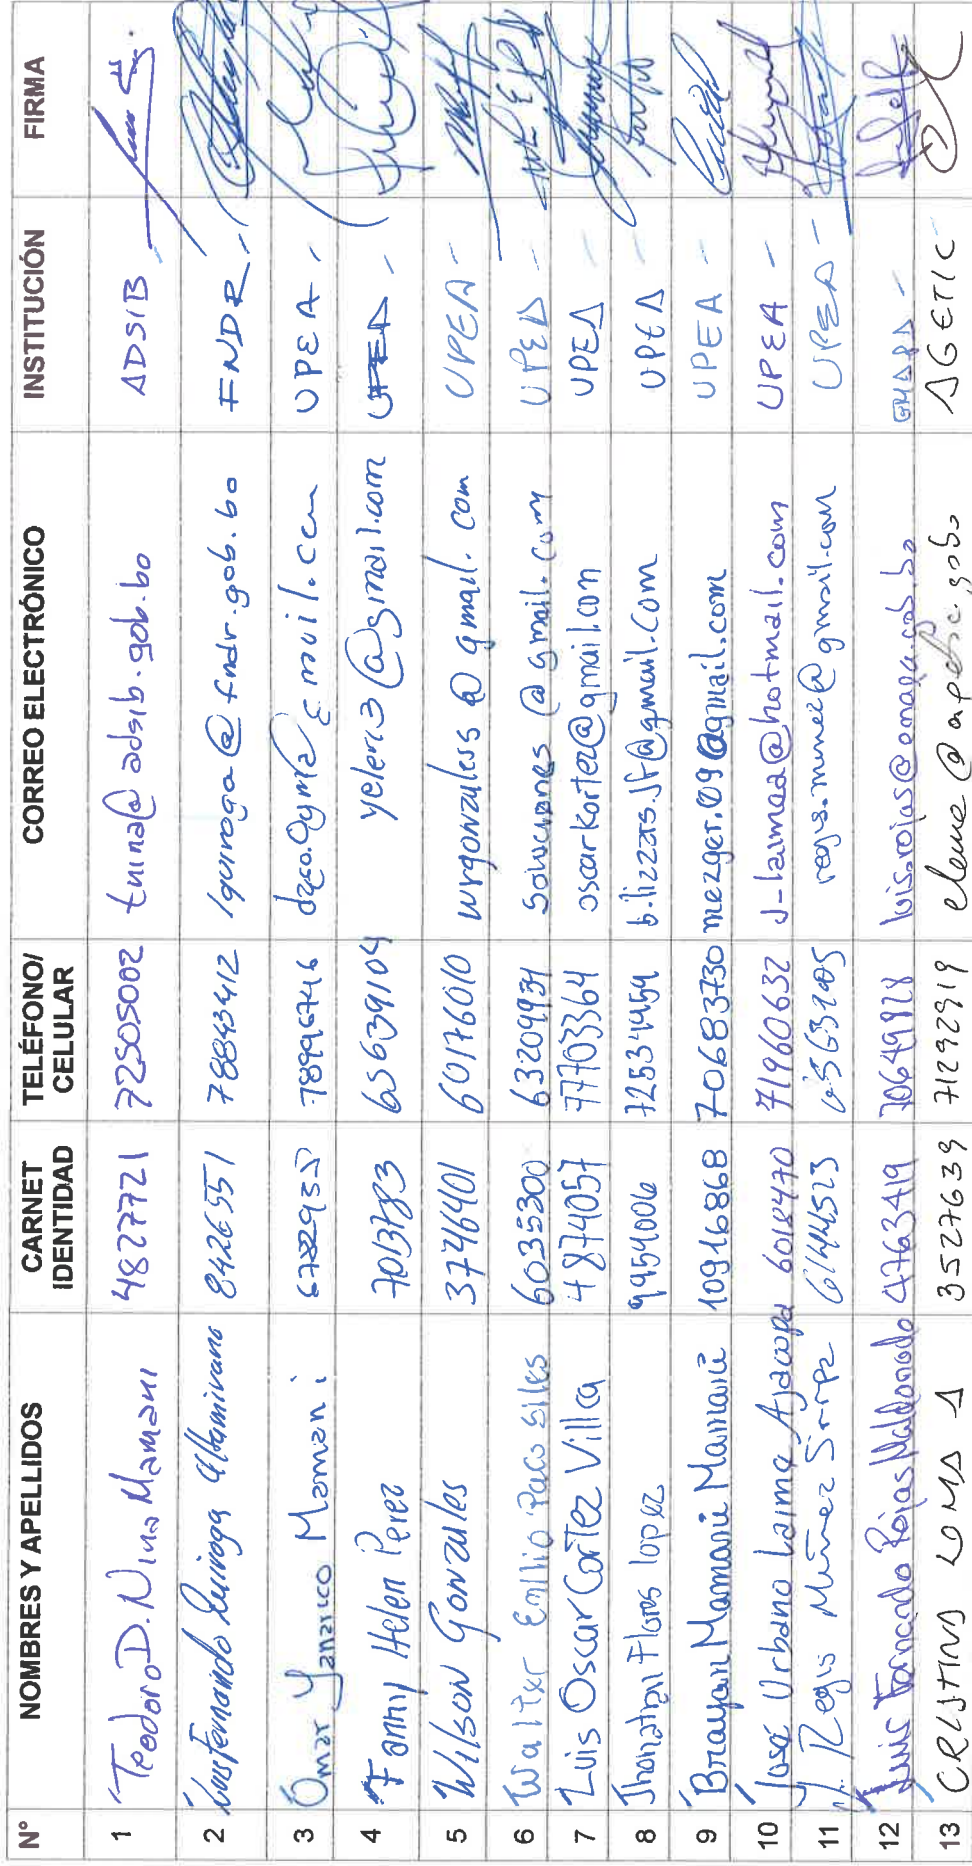 N° NOMBRES Y APELLIDOS CARNET IDENTIDAD TELÉFONO/ CELULAR CORREO ELECTRÓNICO INSTITUCIÓN FIRMA
1 Teodoro D. Nina Mamani 4827721 72505002 tnina@adsib.gob.bo ADSIB
2 Luis Fernando Quiroga Altamirano 8426551 78843412 lquiroga@fndr.gob.bo FNDR
3 Omar Yanarico Mamani UPEA
4 Fanny Helen Perez 7013783 65639104 yeleri3@gmail.com UPEA
5 Wilson Gonzules 3746401 60176010 wrgonzuless@gmail.com UPEA
6 Walter Emilio Paco Siles 6035300 63209931 Soluciones @gmail.com UPEA
7 Luis Oscar Cortez Villca 4874057 77703364 oscarkortez@gmail.com UPEA
8 Jhonatan Flores lopez 9954006 72534454 b.lizzars.jf@gmail.com UPEA
9 Brayan Mamani Mamani 10916868 70683730 mezger.09@gmail.com UPEA
10 José Urbano Laima Ajacopa 6018470 71960632 J-laimaa@hotmail.com UPEA
11 Regis Muñoz Sirpa 6144523 regis.munoz@gmail.com UPEA
12 Luis Fernando Rojas Maldonado 4763419 70649928
13 CRISTINA LOMA A 3527639 71292919 AGETIC